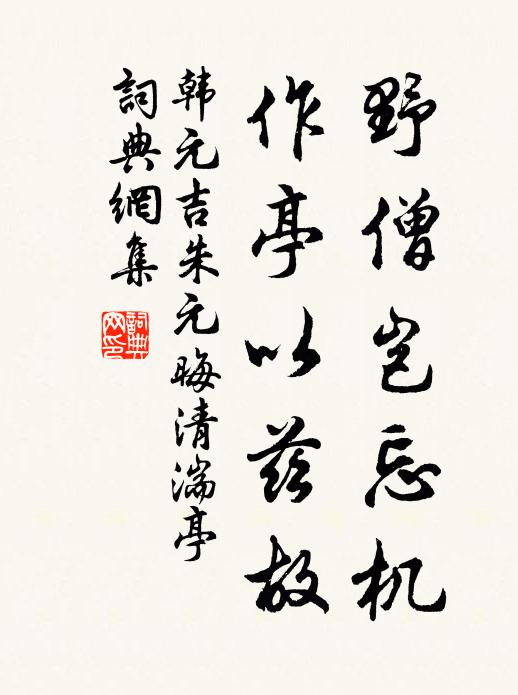 野僧岂忘机
作亭以兹故
韩元吉朱元晦清湍亭
詞典網集
詞典網印